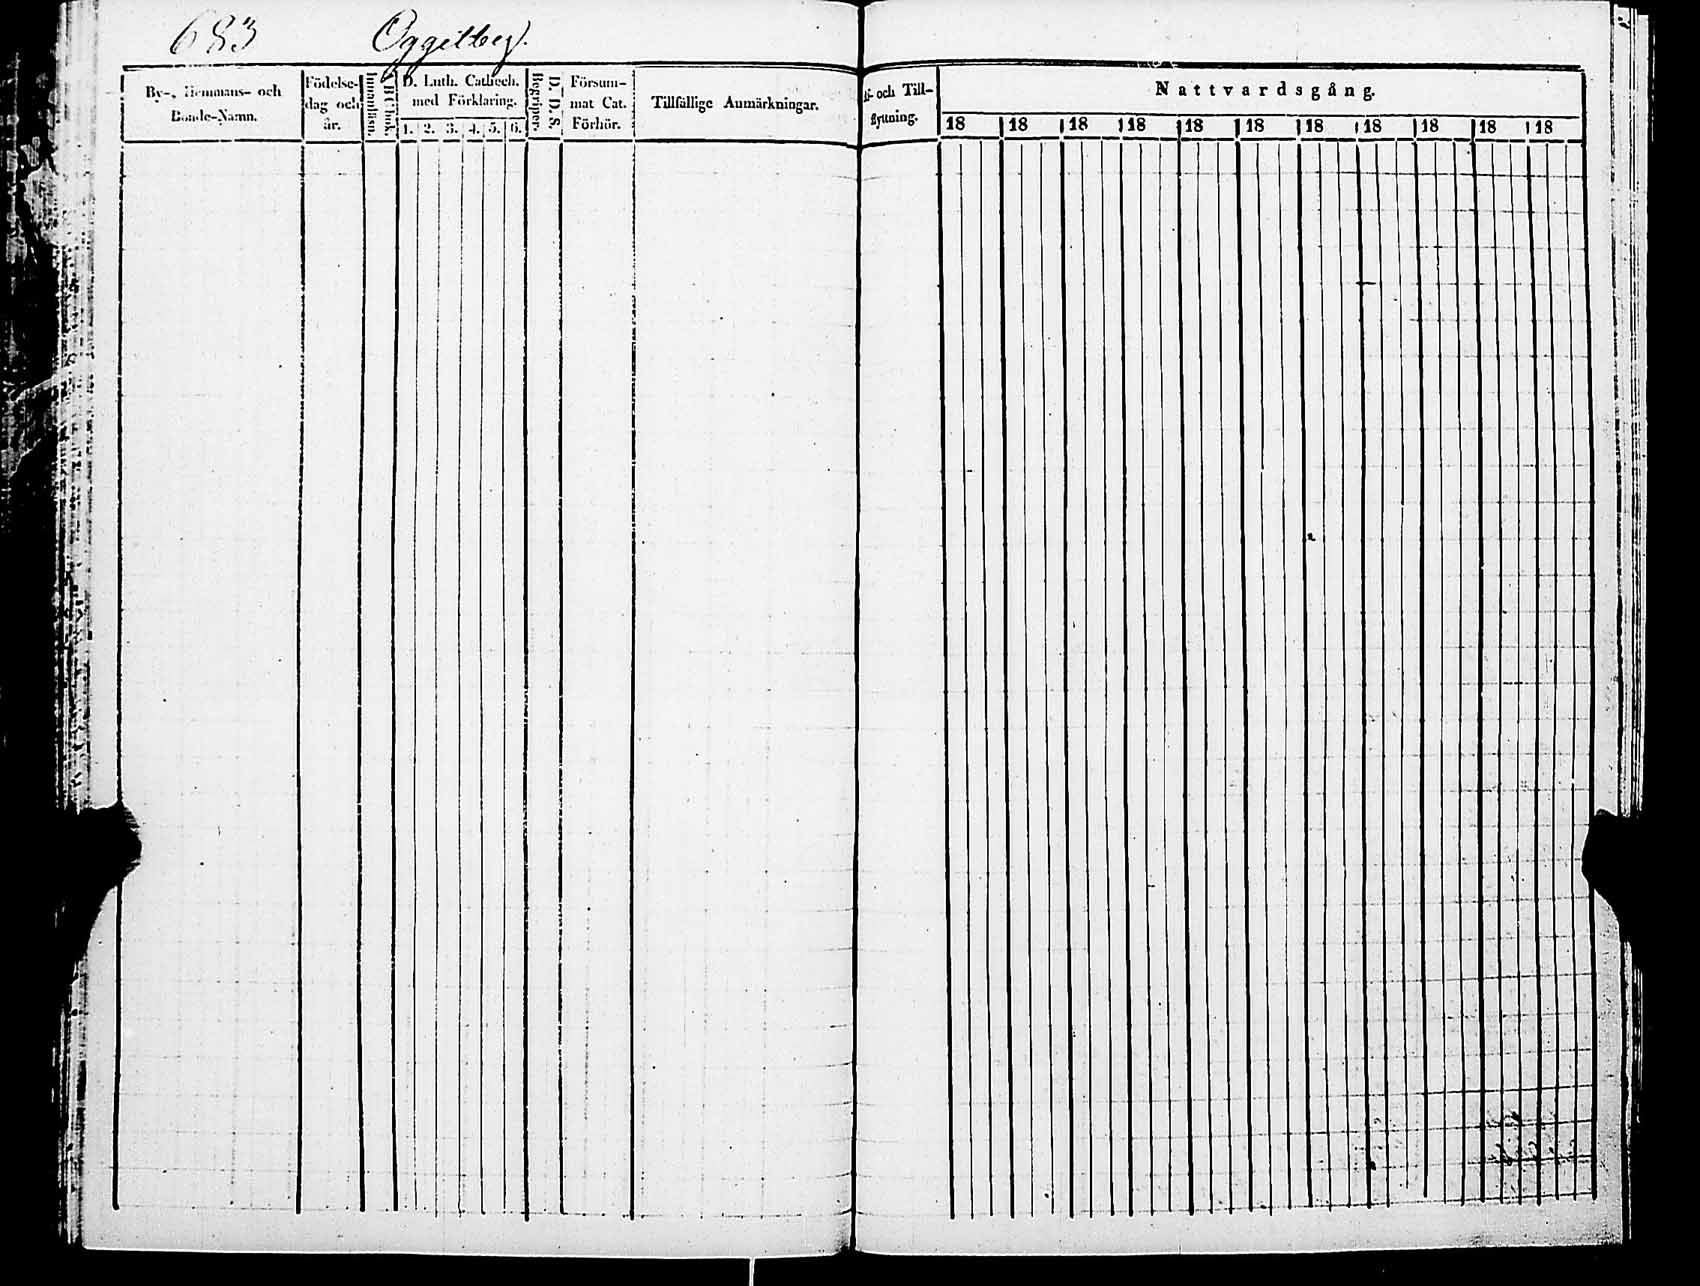 683 Oggelbey.
By-, Hemmans- och
Bonde-Namn.
Födelse-
dag och
år.
Innanläsn.
ABC bok.
D. Luth. Cathech.
med Förklaring.
1. 2. 3. 4. 5. 6.
Begriper.
D. D. S.
Försum-
mat Cat.
Förhör.
Tillfällige Anmärkningar.
och Till-
flyttning.
Nattvardsgång.
18 18 18 18 18 18 18 18 18 18 18